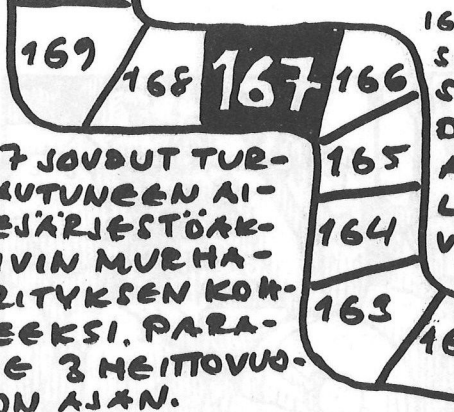 169 168 167 166
165
164
163
7 JOUDUT TUR-
AUTUNEEN AI-
EJÄRJESTÖAK-
IVIN MURHA-
RITYKSEN KOH-
EEKSI. PARA-
E 3 HEITTOVUO-
ON AJAN.
16
S
S
D
A
L
V